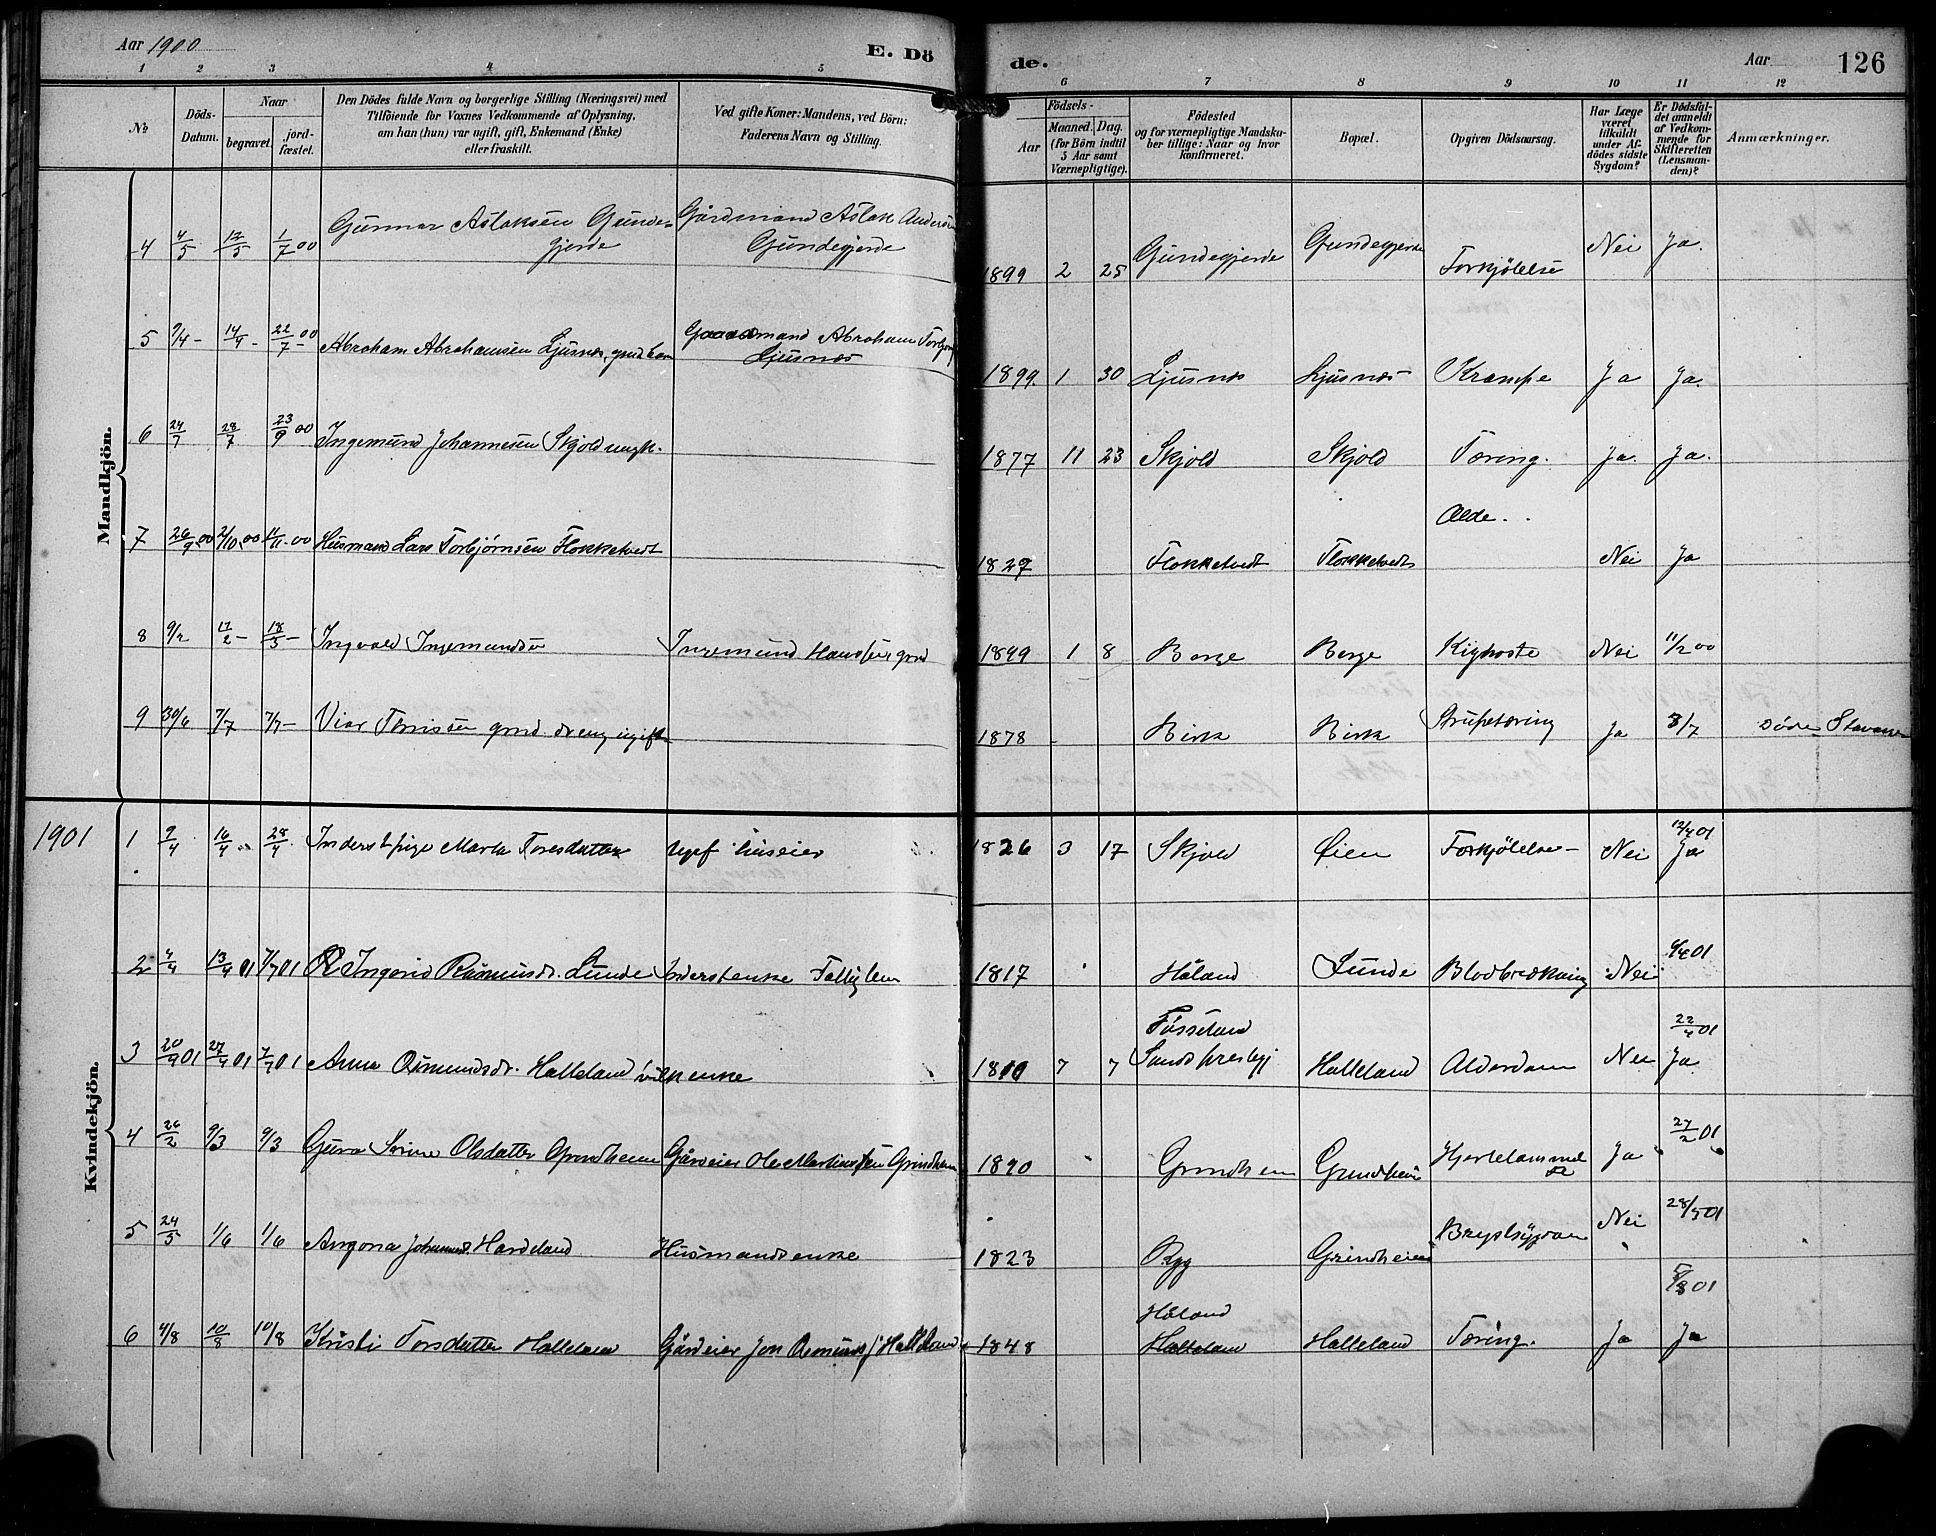 Aar 1900
E. Dö
de.
Aar
126
1 2 3 4 5 6 7 8 9 10 11 12
No
Döds-
Datum.
Naar
begravet.
jord-
fæstet.
Den Dödes fulde Navn og borgerlige Stilling (Næringsvei) med
Tilföiende for Voxnes Vedkommende af Oplysning,
om han (hun) var ugift, gift, Enkemand (Enke)
eller fraskilt.
Ved gifte Koner: Mandens, ved Börn:
Faderens Navn og Stilling.
Födsels-
Aar
Maaned.
Dag.
(for Börn indtil
5 Aar samt
Værnepligtige).
Födested
og for værnepligtige Mandska-
ber tillige: Naar og hvor
konfirmeret.
Bopæl.
Opgiven Dödsaarsag.
Har Læge
været
tilkaldt
under Af-
dödes sidste
Sygdom?
Er Dödsfal-
det anmeldt
af Vedkom-
mende for
Skifteretten
(Lensman-
den)?
Anmærkninger.
Mandkjön.
4 4/5 12/5 1/7 00 Gunnar Aslaksen Gunde- Gårdmand Aslak Andersen
gjerde Gundegjerde
1899 2 25 Gundegjerde Gundegjerde Forkjölelse Nei Ja.
5 9/4 - 14/4 - 22/7 - 00 Abraham Abrahamsen Ljusnes, Gaardmand Abraham
Ljusnes
1899 1 30 Ljusnes Ljusnes Krampe Ja Ja.
6 24/7 28/7 23/9 00 Ingemund Johannesen Skjold ungk.
1877 11 23 Skjold Skjold Tæring. Ja. Ja.
7 26/9 00 2/10 00 11/11 - 00 Husmand Lars Torbjörnsen Flokketvedt
1827 Flokketvedt Flokketvedt Ælde. Nei Ja
8 9/2 17/2 - 18/5 - Ingvald Ingemundsen Ingemund Hanssen, grd
1899 1 8 Berge Berge Kighoste Nei 11/2 00
9 30/6 7/7 7/7 - Viar Tørrissen grd dreng ugift
1878 - Birk Birk Strupetæring Ja 8/7 Döde i Stavanger
1901
Kvindekjön.
1 9/4 16/4 28/4 Inderst pige Marta Toresdatter ugift huseier
1826 3 17 Skjold Øien Forkjölelse - Nei 12/4 01
Ja
2 4/4 13/4 01 7/7 01 Ingerid Rasmusdr. Lunde Inderstenke Fattiglem
1817 Håland Lunde Blodbrækning Nei 9/4 01
3 20/4 01 27/4 01 7/7 01 Anna Osmundsdr. Halleland vilkenke
1810 7 7 Fosseland
Sands prestegj Halleland Alderdom Nei 22/4 01
Ja
4 26/2 9/3 9/3 Gura Serine Olsdatter Grindheim Gårdeier Ole Martinussen Grindheim
1890 Grindheim Grindheim Ja 27/2 01
5 24/5 1/6 1/6 Johannesd. Hardeland Husmandsenke
1823 Rygg Grindheim Brystsygdom Nei 28/5 01
6 4/8 10/8 10/8 Kristi Torsdatter Halleland Gårdeier Jon Osmunds. Halleland
1848 Håland
Halleland Halleland Tæring. Ja 5/8 01
Ja